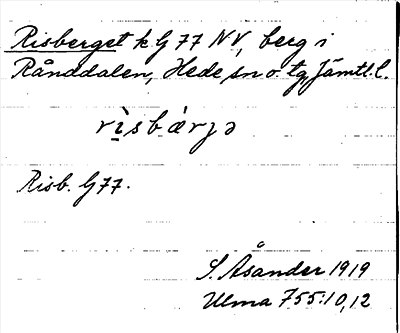 Risberget k G 77 NV, berg i
Rånddalen, Hede sn o. tg Jämtl. l.
rìsbǽrjə
Risb. G 77.
S. Åsander 1919
Ulma 755:10,12